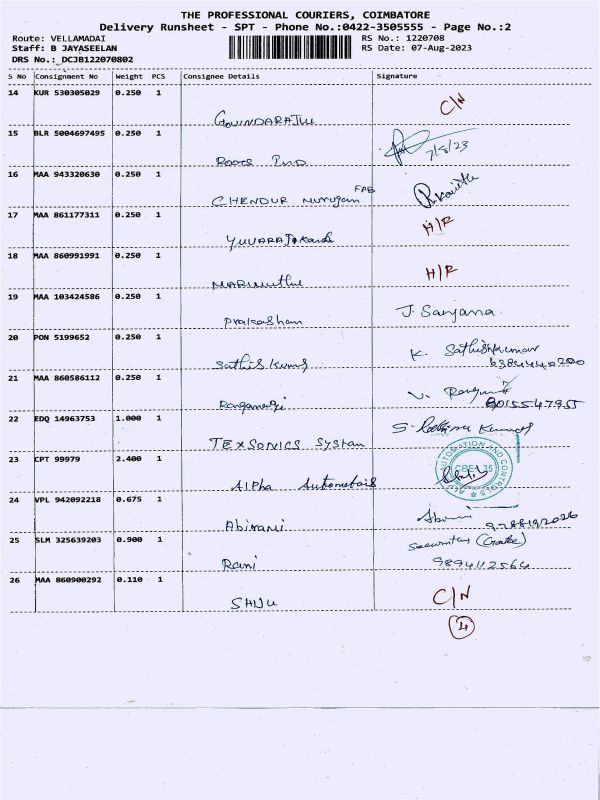 THE PROFESSIONAL COURIERS, COIMBATORE
Delivery Runsheet - SPT - Phone No.:0422-3505555 - Page No.:2
Route: VELLAMADAI RS No.: 1220708
Staff: B JAYASEELAN RS Date: 07-Aug-2023
DRS No.: DCJB122070802
S No Consignment No Weight PCS Consignee Details Signature
14 KUR 530305029 0.250 1
C/N
GOVINDARAJU
15 BLR 5004697495 0.250 1
7/8/23
ROOTS IND
16 MAA 943320630 0.250 1
FAB
CHENDUR murugan
17 MAA 861177311 0.250 1
H/R
18 MAA 860991991 0.250 1
H/R
MARIMUthu
19 MAA 103424586 0.250 1
J. Sanjana
20 PON 5199652 0.250 1
K. Sathishkumar
Sathis kumar
21 MAA 860586112 0.250 1
8015547955
22 EDQ 14963753 1.000 1
TEXSONICS System
23 CPT 99979 2.400 1
AUTOMATION AND CONTROLS
CBE-35
Alpha
24 VPL 942092218 0.675 1
Abirami
25 SLM 325639203 0.900 1
Security (Gate)
9894112564
Rani
26 MAA 860900292 0.110 1
C/N
SHIJU
4